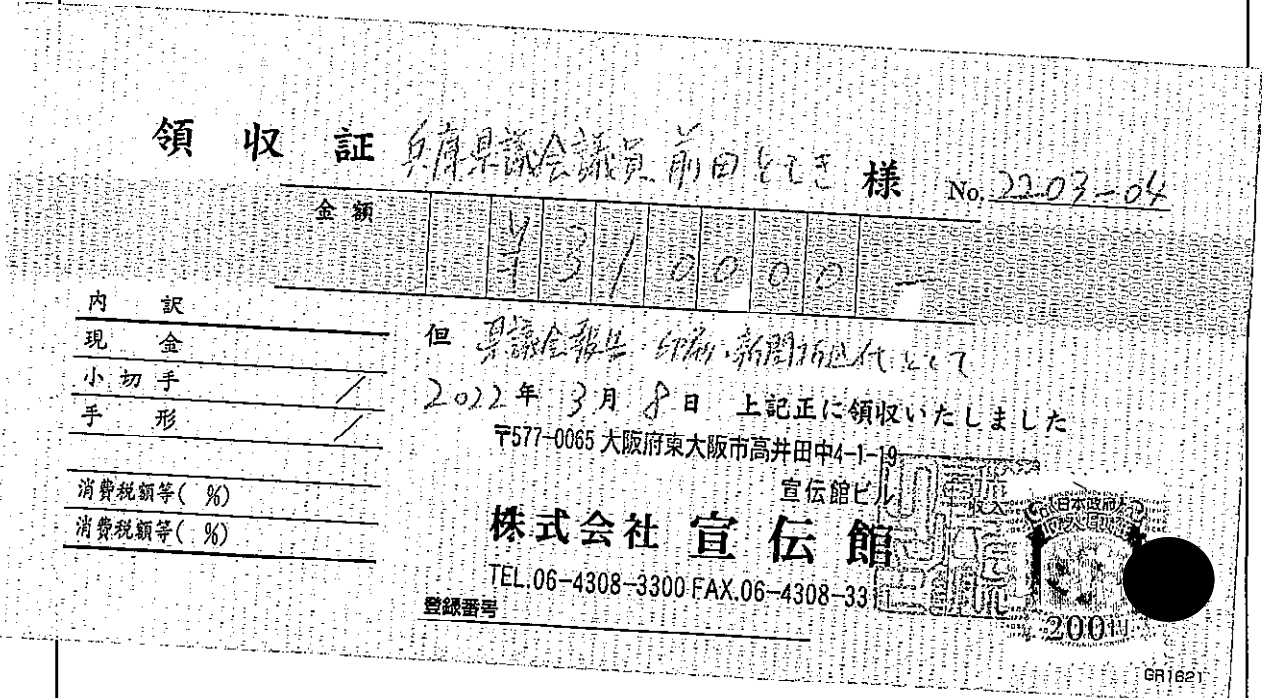 領収証 兵庫県議会議員 前田ともき 様 No. 22-03-04
金額 ¥310000-
内訳
現金
小切手 /
手形 /
消費税額等( %)
消費税額等( %)
但 県議会報告 印刷・新聞折込代として
2022年 3月 8日 上記正に領収いたしました
〒577-0065 大阪府東大阪市高井田中4-1-19
宣伝館ビル
株式会社 宣伝館
TEL.06-4308-3300 FAX.06-4308-33
登録番号
日本政府
200円
GR1621